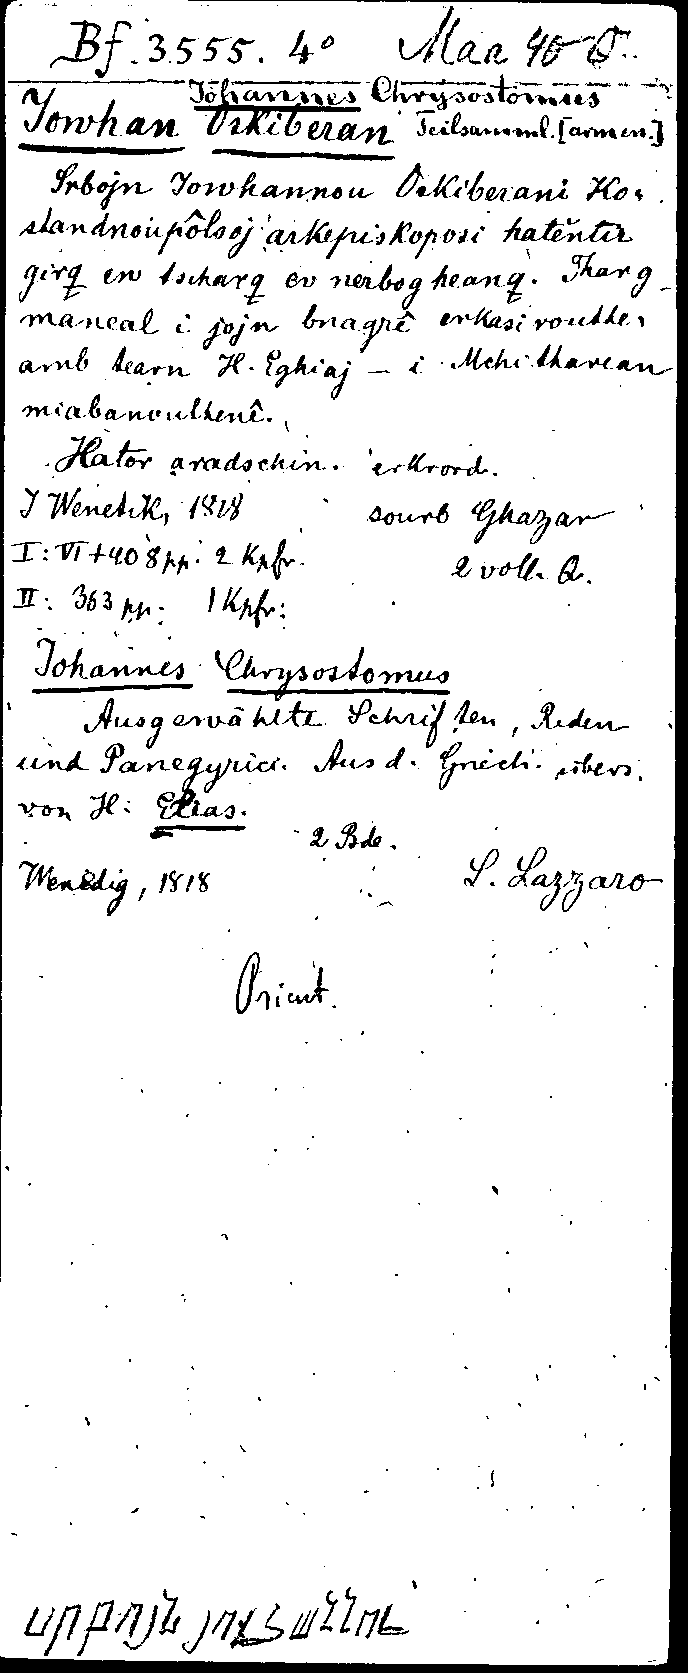 Bf. 3555. 4° Maa 40 O.
Johannes Chrysostomus
Jowhan Oskiberan Teilsamml. [armen.]
Srbojn Jowhannou Oskiberani Ko-
standnoupôlsoj arkepiskoposi hatěntir
girq ew tscharq ev nerbogheanq. Tharg-
maneal i jojn bnagrê erkasirouthe-
amb tearn H. Eghiaj — i Mchitharean
miabanouthenê.
Hator aradschin. erkrord.
I Wenetik, 1818 sourb Ghazar
I: VI + 408 pp. 2 Kpfr. 2 voll. Q.
II: 363 pp. 1 Kpfr:
Johannes Chrysostomus
Ausgewählte Schriften, Reden
und Panegyrici. Aus d. Griech. übers.
von H: Elias.
2 Bde.
Wenedig, 1818 S. Lazzaro
Orient.
սրբոյն յովհաննու